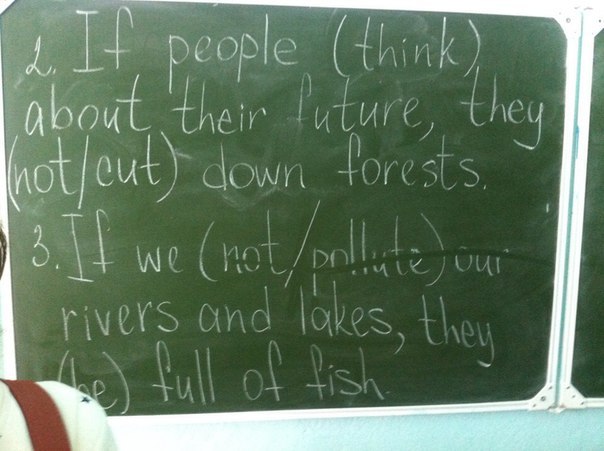 2. If people (think)
about their future, they
(not/cut) down forests.
3. If we (not/pollute) our
rivers and lakes, they
(be) full of fish.